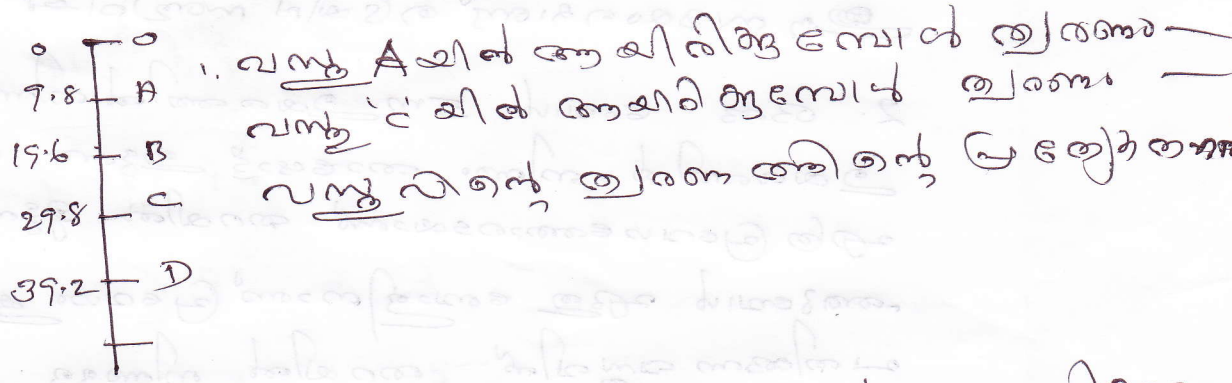 0 0
9.8 A
19.6 B
29.8 C
39.2 D
1. വസ്തു A യിൽ ആയിരിക്കുമ്പോൾ ത്വരണം —
വസ്തു 'C' യിൽ ആയിരിക്കുമ്പോൾ ത്വരണം —
വസ്തുവിന്റെ ത്വരണത്തിന്റെ പ്രത്യേകത